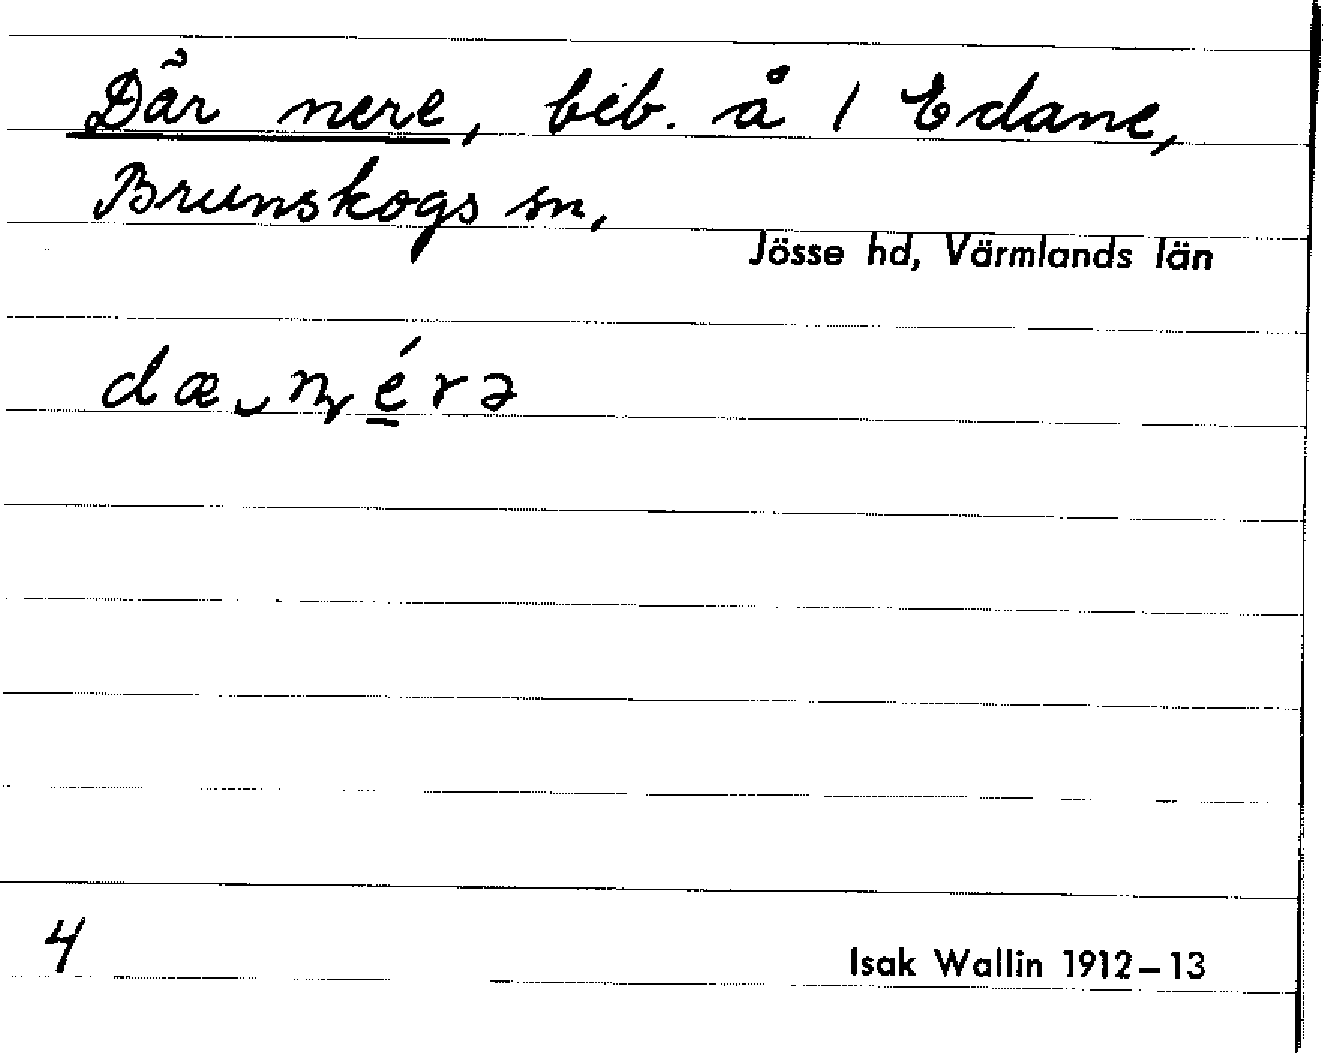 Där nere, beb. å 1 Edane,
Brunskogs sn,
Jösse hd, Värmlands län
dæ‿ɳérə
4
Isak Wallin 1912–13